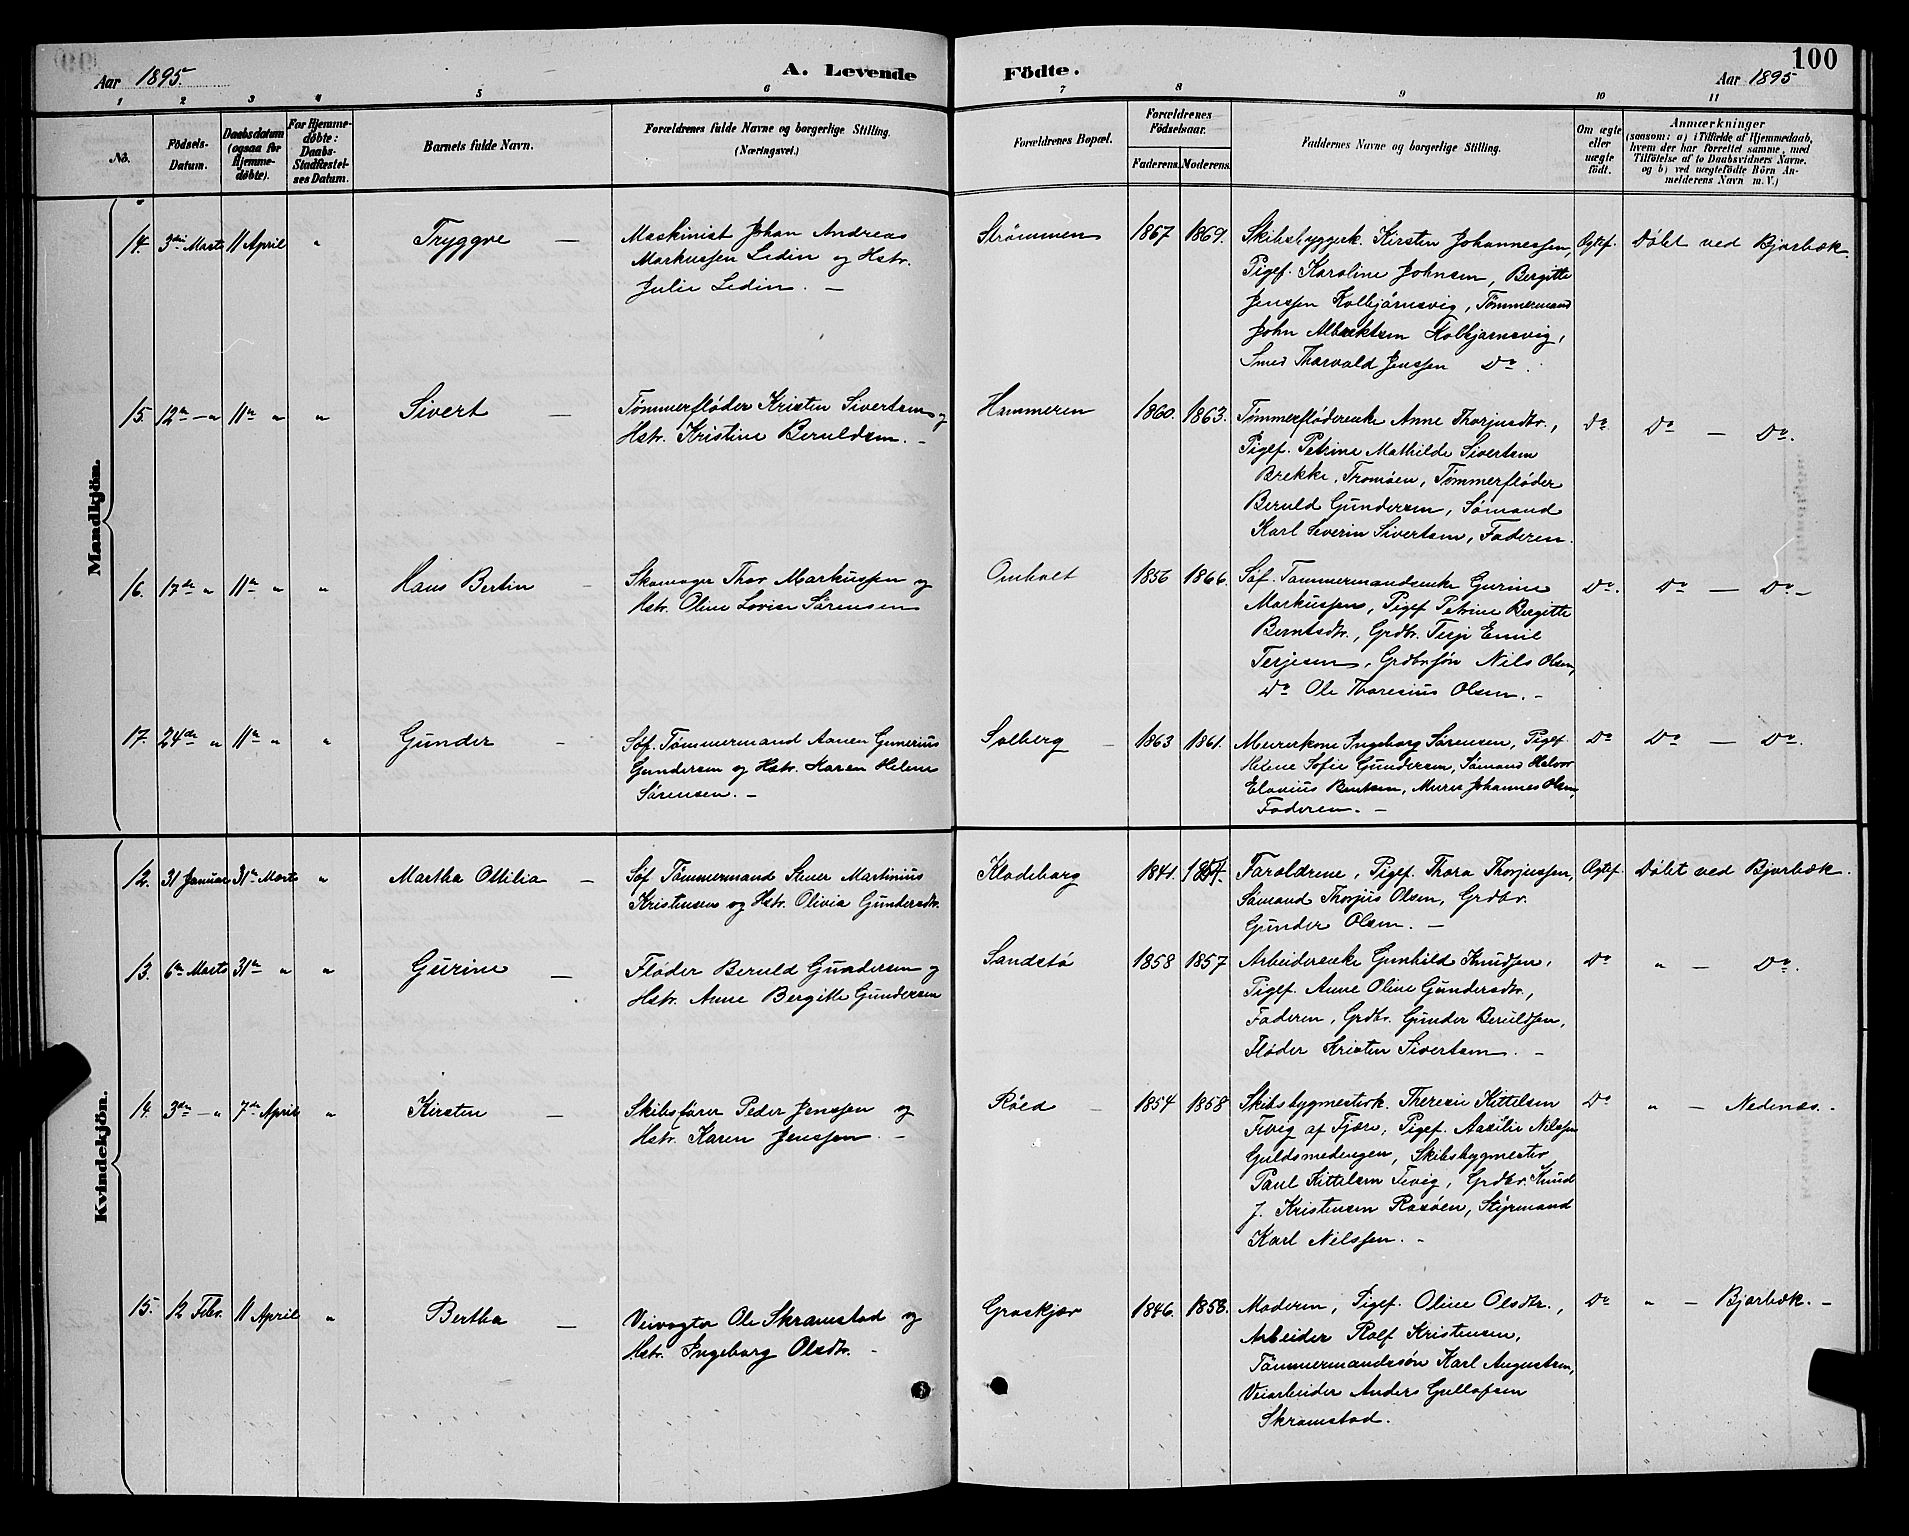 Aar 1895.
A. Levende
Födte.
100
Aar 1895
1 2 3 4 5 6 7 8 9 10 11
No.
Födsels-
Datum.
Daabsdatum
(ogsaa for
Hjemme-
døbte).
For Hjemme-
døbte:
Daabs-
Stadfæstel-
ses Datum.
Barnets fulde Navn.
Forældrenes fulde Navne og borgerlige Stilling.
(Næringsvei.)
Forældrenes Bopæl.
Forældrenes
Födselsaar.
Faderens. Moderens.
Faddernes Navne og borgerlige Stilling.
Om ægte
eller
uægte
födt.
Anmærkninger
(saasom: a) i Tilfælde af Hjemmedaab,
hvem der har forrettet samme, med
Tilföielse af to Daabsvidners Navne.
og b) ved uægtefödte Börn An-
melderens Navn m. V.)
Mandkjön.
14. 3die Marts 11 April " Tryggve —
Maskinist Johan Andreas
Markussen Ledin og Hstr.
Julie Ledin. —
Strömmen 1867 1869.
Skibsbyggerk. Kirsten Johannessen,
Pigef. Karoline Johnsen, Bergitte
Jenssen Kolbjörnsvig, Tömmermand
John Albrektsen Kolbjørnsvig,
Smed Thorvald Jenssen Do.
Ægtef. Döbt ved Bjorbæk.
15. 12te — " 11te " " Sivert —
Tømmerfløder Kristen Sivertsen og
Hstr. Kristine Beruldsen. —
Hammeren 1860. 1863.
Tømmerfløderenke Anne Thorjusdtr.,
Pigef. Petrine Mathilde Sivertsen
Brekke, Tromøen, Tømmerfløder
Beruld Gundersen, Sömand
Karl Severin Sivertsen, Faderen.
Do. Do — Do.
16. 17de " 11te " " Hans Bertin —
Skomager Thor Markussen og
Hstr. Oline Lovise Sørensen
Omholt 1856 1866.
Søf. Tømmermandsenke Gurine
Markussen, Pigef. Petrine Bergitte
Berntsdtr., Grdbr. Terje Emil
Terjesen, Grdbrsøn Nils Olsen,
Do Ole Thoresius Olsen. —
Do. Do — Do —
17. 24de " 11te " " Gunder —
Søf. Tømmermand Aanen Gunerius
Gundersen og Hstr. Karen Helene
Sørensen. —
Solberg — 1863 1861.
Murerkone Ingeborg Sørensen, Pigef.
Helene Sofie Gundersen, Sømand Halvor
Elovius Bentsen, Murer Johannes Olsen,
Faderen. —
Do Do — Do.
Kvindekjön.
12. 31 Januar 31te Marts " Martha Ottilia —
Søf. Tømmermand Stener Martinius
Kristensen og Hstr. Olivia Gundersdtr.
Klodeborg 1841.
Forældrene, Pigef. Thora Thorjussen,
Sømand Thorjus Olsen, Grdbr.
Gunder Olsen. —
Ægtef. Döbt ved Bjorbæk.
13. 6te Marts 31te " " Gurine —
Fløder Beruld Gundersen og
Hstr. Anne Bergitte Gundersen
Sandstø 1858 1857
Arbeiderenke Gunhild Knudsen,
Pigef. Anne Oline Gundersdtr.,
Faderen, Grdbr. Gunder Beruldsen,
Fløder Kristen Sivertsen. —
Do " — Do.
14. 3die — " 7de April " Kirsten —
Skibsfører Peder Jenssen og
Hstr. Karen Jenssen. —
Röed — 1854 1858
Skibsbygmesterk. Theresie Kittelsen
Fevig af Fjære, Pigef. Aasilie Nilssen
Guldsmedengen, Skibsbygmester
Paul Kittelsen Fevig, Grdbr. Knud
J. Kristensen Rosøen, Styrmand
Karl Nilssen. —
Do " — Nedenæs. —
15. 12 Febr. 11 April " Bertha —
Veivogter Ole Skramstad og
Hstr. Ingeborg Olsdtr. —
Groskjær 1846. 1853.
Moderen, Pigef. Oline Olsdtr.,
Arbeider Rolf Kristensen,
Tömmermandssön Karl Augustsen,
Veiarbeider Anders Gullofsen
Skramstad.
Do " — Bjorbæk. —